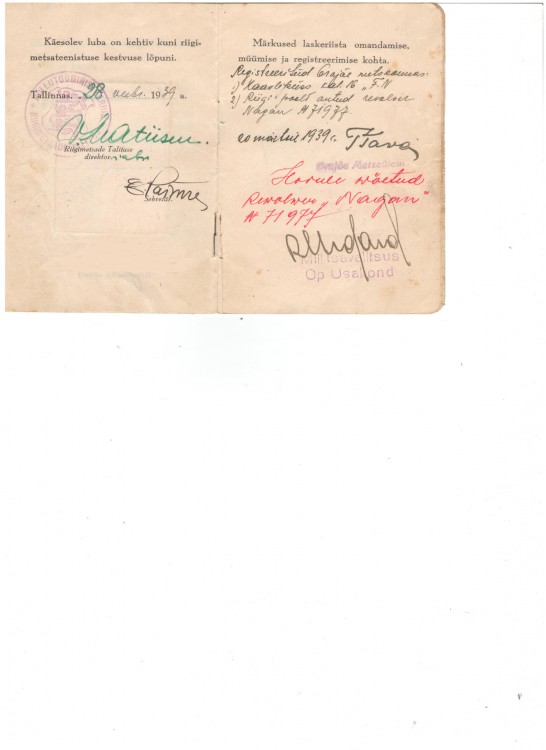 Käesolev luba on kehtiv kuni riigi-
metsateenistuse kestvuse lõpuni.
Tallinnas, 28 veebr. 1939 a.
Riigimetsade Talituse
direktor
Sekretär
Märkused laskeriista omandamise,
müümise ja registreerimise kohta.
Registreeritud Orajõe metskonnas:
1) Kaasliküss kal. 16 „F.N
2) Riigi poolt antud revolver
Nagan № 71977
20 märtsil 1939 a.
Orajõe Metsaülem
Korule võetud
Rewolwer „Nagan"
№ 71977
Miilitsavalitsus
Op Usakond